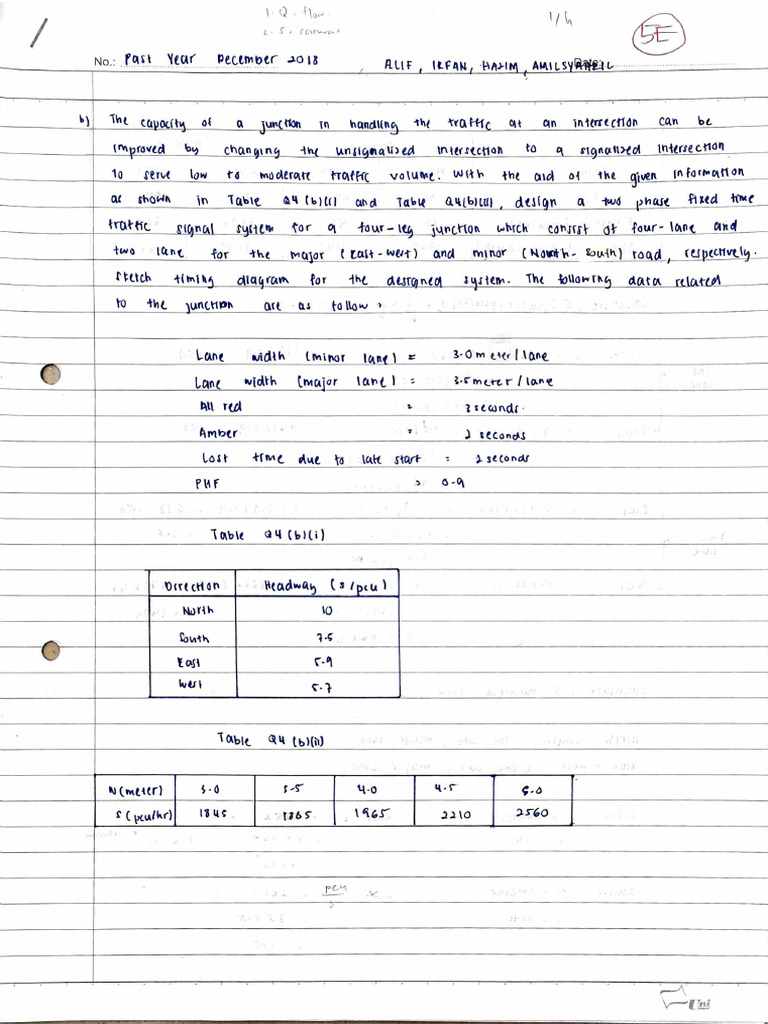 1. Q - flow
2. S - saturated
1/h
5E
No.: Past Year December 2018
ALIF, IRFAN, HAZIM, AMILSYAHZIL
b) The capacity of a junction in handling the traffic at an intersection can be
improved by changing the unsignalized intersection to a signalized intersection
to serve low to moderate traffic volume. With the aid of the given information
as shown in Table Q4(b)(i) and Table Q4(b)(ii), design a two phase fixed time
traffic signal system for a four-leg junction which consist of four-lane and
two lane for the major (East-West) and minor (North-South) road, respectively.
Sketch timing diagram for the designed system. The following data related
to the junction are as follow :
Lane width (minor lane) = 3.0 meter/lane
Lane width (major lane) = 3.5 meter/lane
All red = 3 seconds.
Amber = 2 seconds
Lost time due to late start = 2 seconds
PHF = 0.9
Table Q4(b)(i)
Direction Headway (s/pcu)
North 10
South 7.5
East 5.9
West 5.7
Table Q4(b)(ii)
N(meter) 3.0 3.5 4.0 4.5 5.0
S(pcu/hr) 1845 1865 1965 2210 2560
pcu
s
Uni